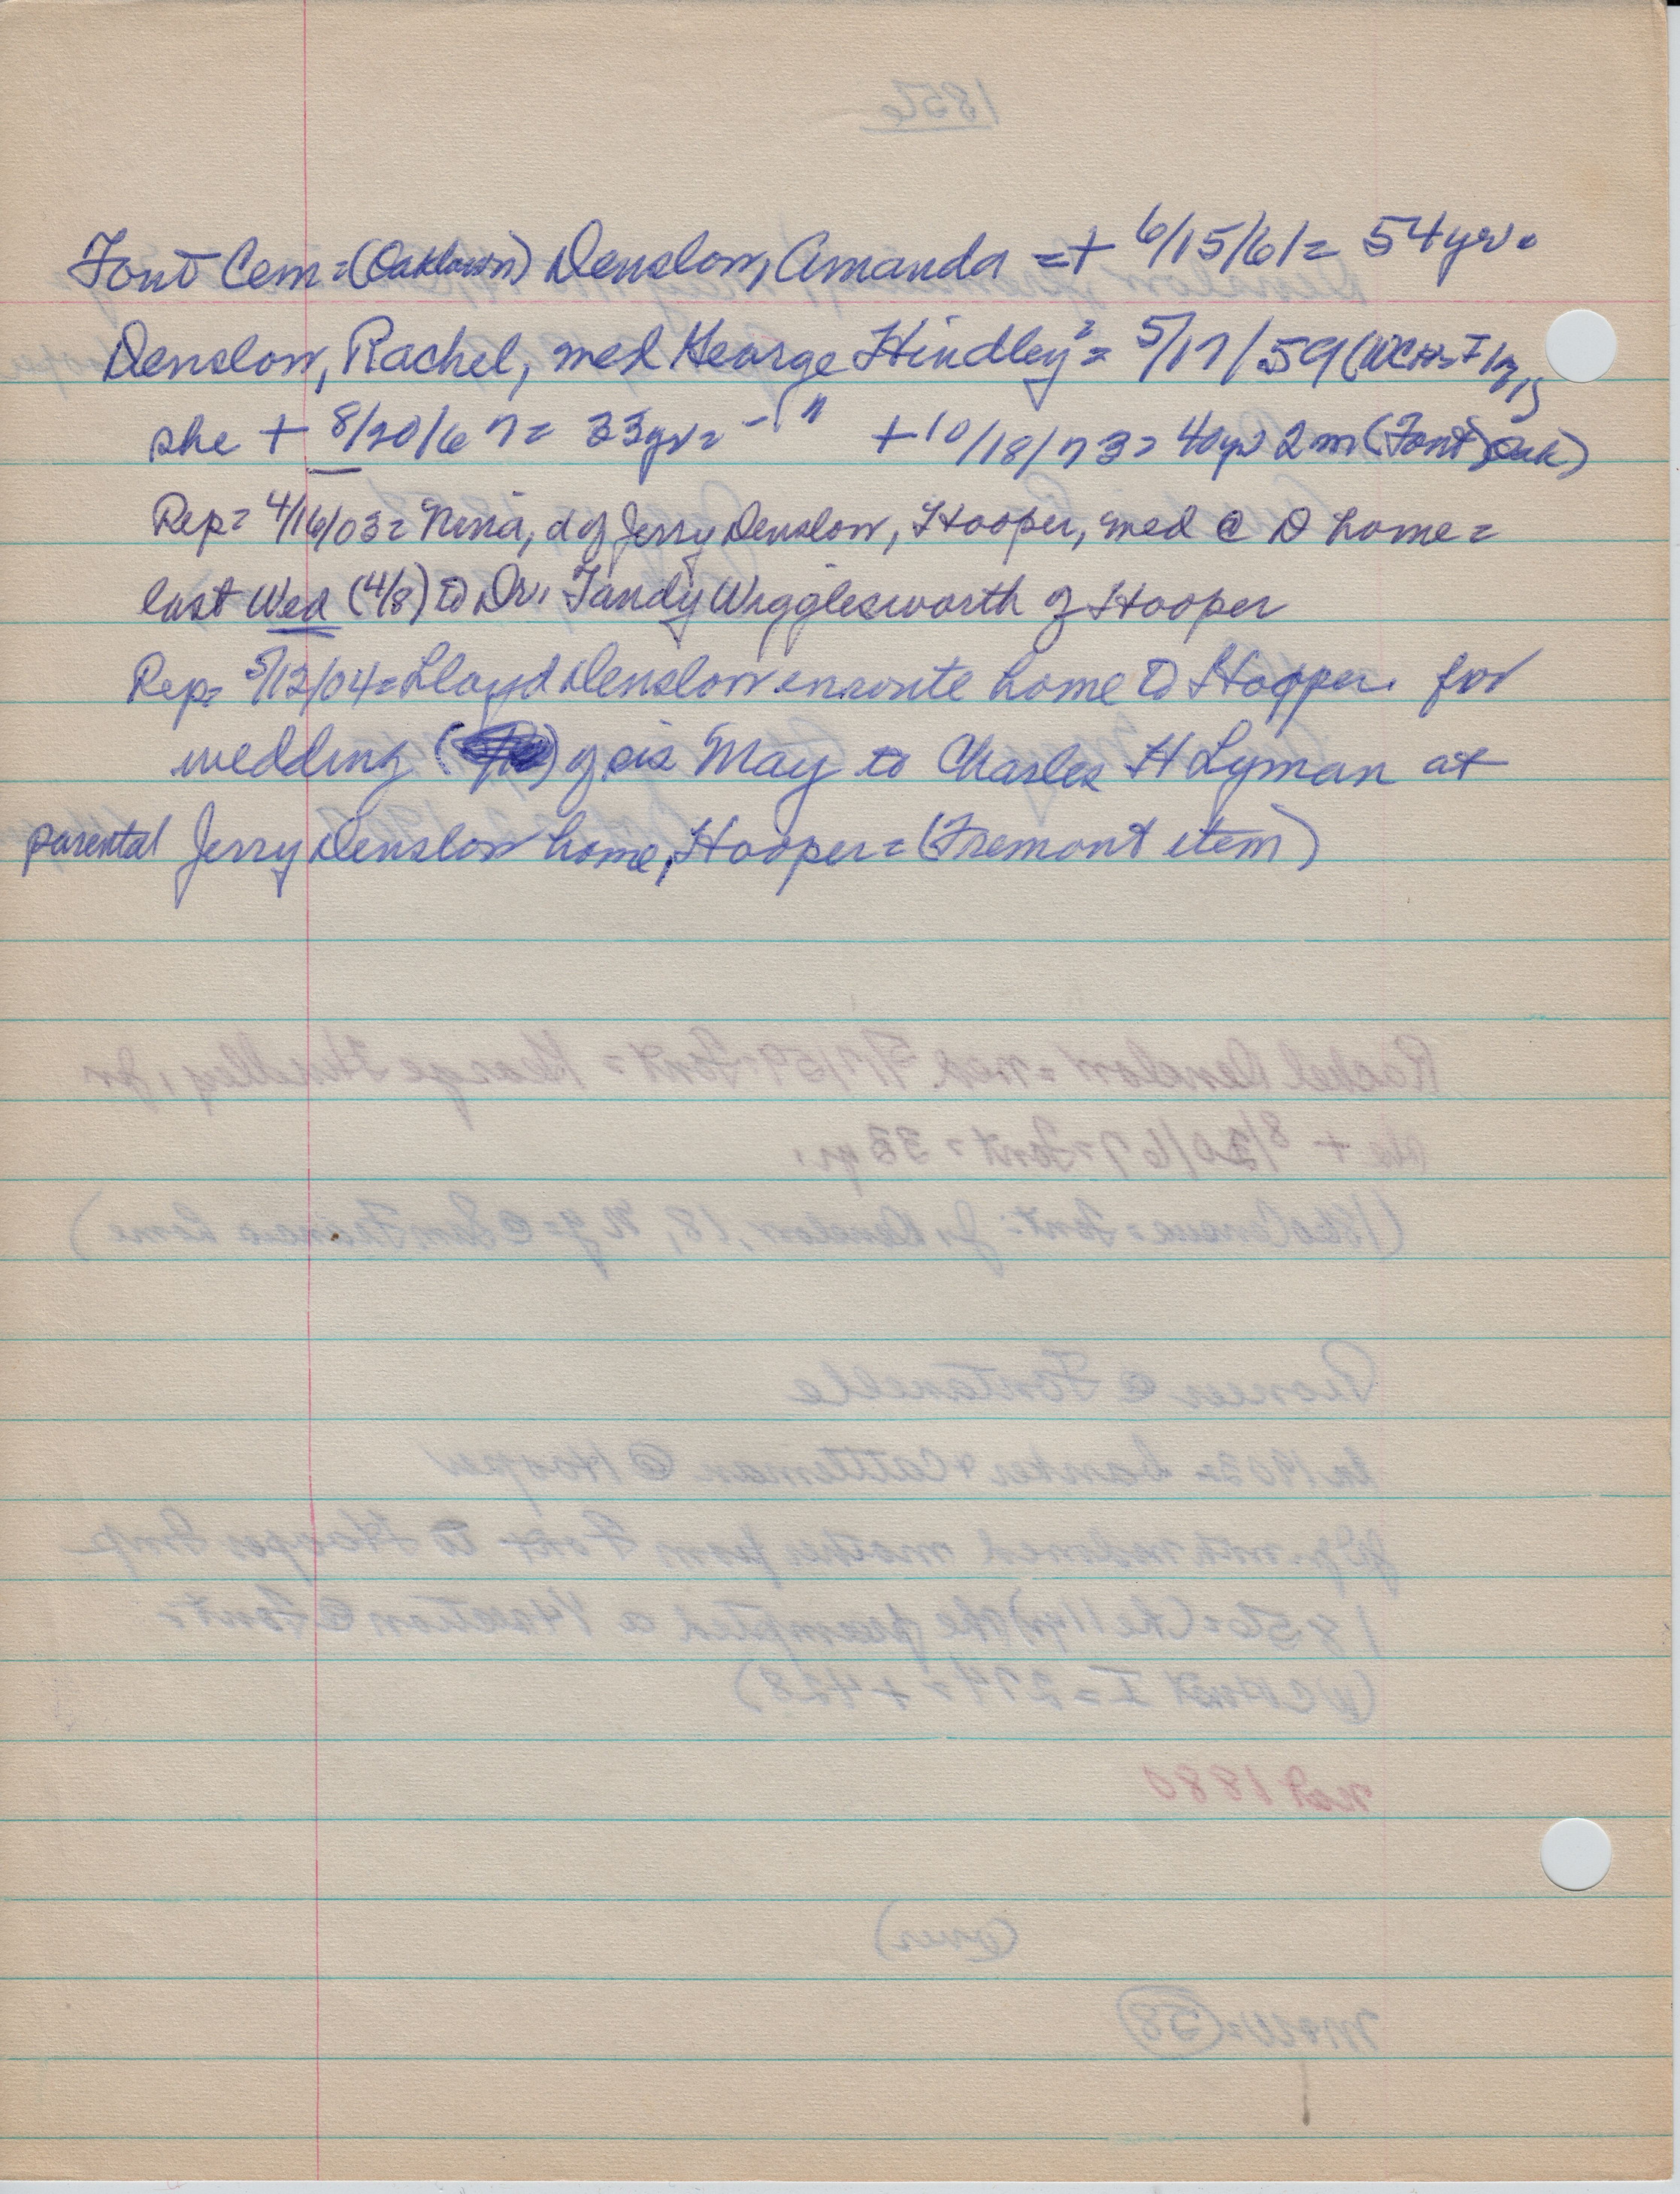 Font Cem = (Oaklawn) Denslow, Amanda = + 6/15/61 = 54 yr.
Denslow, Rachel, med George Hindley = 5/17/59 (WCHist I
she + 8/20/67 = 33 yr = - " + 10/18/73 = 40 yr 2 m (Font) Oak)
Rep = 4/16/03 = Nina, d of Jerry Denslow, Hooper, med @ D home =
last Wed (4/8) to Dr. Tandy Wigglesworth of Hooper
Rep = 5/12/04 = Lloyd Denslow enroute home to Hooper. for
wedding ( ) of sis May to Charles H Lyman at
parental Jerry Denslow home, Hooper = (Fremont item)